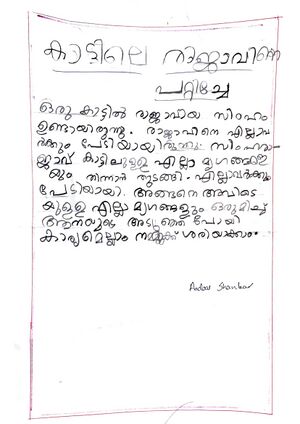 കാട്ടിലെ രാജാവിനെ
പറ്റിച്ചേ
ഒരു കാട്ടിൽ രാജാവായ സിംഹം
ഉണ്ടായിരുന്നു. രാജാവിനെ എല്ലാവ
ർക്കും പേടിയായിരുന്നു. സിംഹരാ
ജാവ് കാട്ടിലുള്ള എല്ലാ മൃഗങ്ങളെ
യും തിന്നാൻ തുടങ്ങി. എല്ലാവർക്കും
പേടിയായി. അങ്ങനെ അവിടെ
യുള്ള എല്ലാ മൃഗങ്ങളും ഒരുമിച്ച്
ആനയുടെ അടുത്തെ പോയി
കാര്യമെല്ലാം നമുക്ക് ശരിയാക്കാം.
Shankar